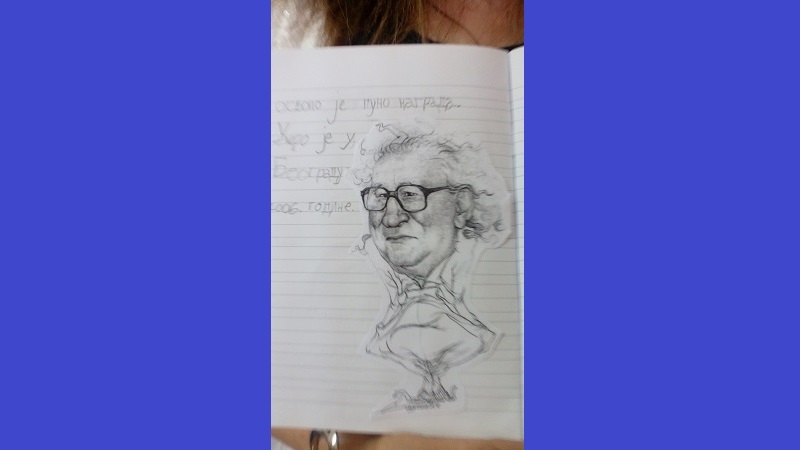 освоио је пуно награда.
Умро је у
Београду
2006. године.